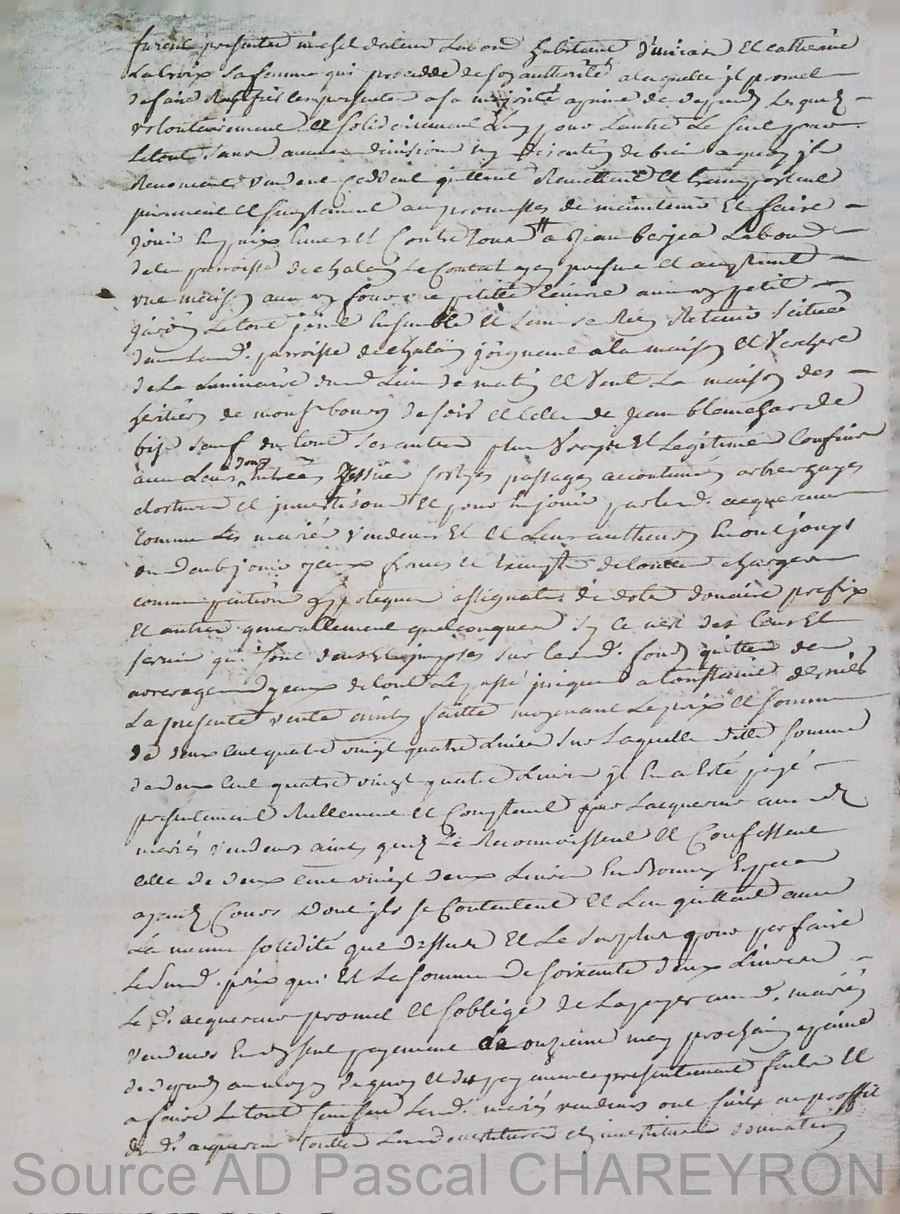 furent presents michel daleur Labour habitant d'            et catherine
Lacroix sa femme qui procedde de son authorité a laquelle jl promet
de faire Ratiffier les presentes a sa majorité a peine de depends Lesquels
volontairement et solidairement L'un pour Lautre Le seul pour
Letout sans aucune division ny discution de bien a quoy jls
Renoncent vendent ceddent quittent Remettent et transportent
purement et simplement avec promesses de maintenir Et faire
jouir                  envers et Contre tous a Jean            Labour
dela parroisse de chalain Le Comtal            present et acceptant
une maison avec un four une petite            avec un petit
jardin Letout joint Ensemble et            se             situées
dans Lad. parroisse de chalain joignant a la maison et verchere
de La Luminaire dud Lieu de matin et vent La maison des
heritiers de mons.r bourg de soir et celle de Jean blanchard de
bize sauf du tout ses autres plus vrayes Et Legitimes Confins
avec Leurs Entrées yssues sortyes passages accoutumés arbergages
clostures et            et pour en jouir par led. acquereur
comme Les mariés vendeurs Et et Leurs autheurs en ont jouys
ou deub jouir            francs et            de toutes charges
           hypoteques assignats de dote douaire prefix
Et autres generallement quelconques sy ce nest des Cens Et
servis qui sont deus Et imposés sur Lesd. fonds quittes des
arrerages            de tout Le passé jusques a La           dernier
La presente vente ainsy faitte moyenant Le prix et somme
de deux cent quatre vingt quatre Livres sur Laquelle ditte somme
de deux cent quatre vingt quatre Livres jl En a Esté payé
presentement Reellement et Comptant par Lacquereur auxd
mariés vendeurs ainsy quils Le Reconnoissent et Confessent
celle de deux cent vingt deux Livres En Bonnes Especes
ayant Cours dont jls se Contentent et Len quittent avec
La meme solidité que dessus Et Le surplus pour parfaire
Le susd. prix qui est La somme de soixante deux Livres
Le d. acquereur promet et soblige de La payer auxd. mariés
vendeurs En un seul payement            onzieme may prochain a peine
de depends au moyen de quoy et des payements presentement faits et
a faire Letout            Lesd. mariés vendeurs ont faits au proffit
dud. acquereur toutes            devestitures et investitures
Source AD Pascal CHAREYRON